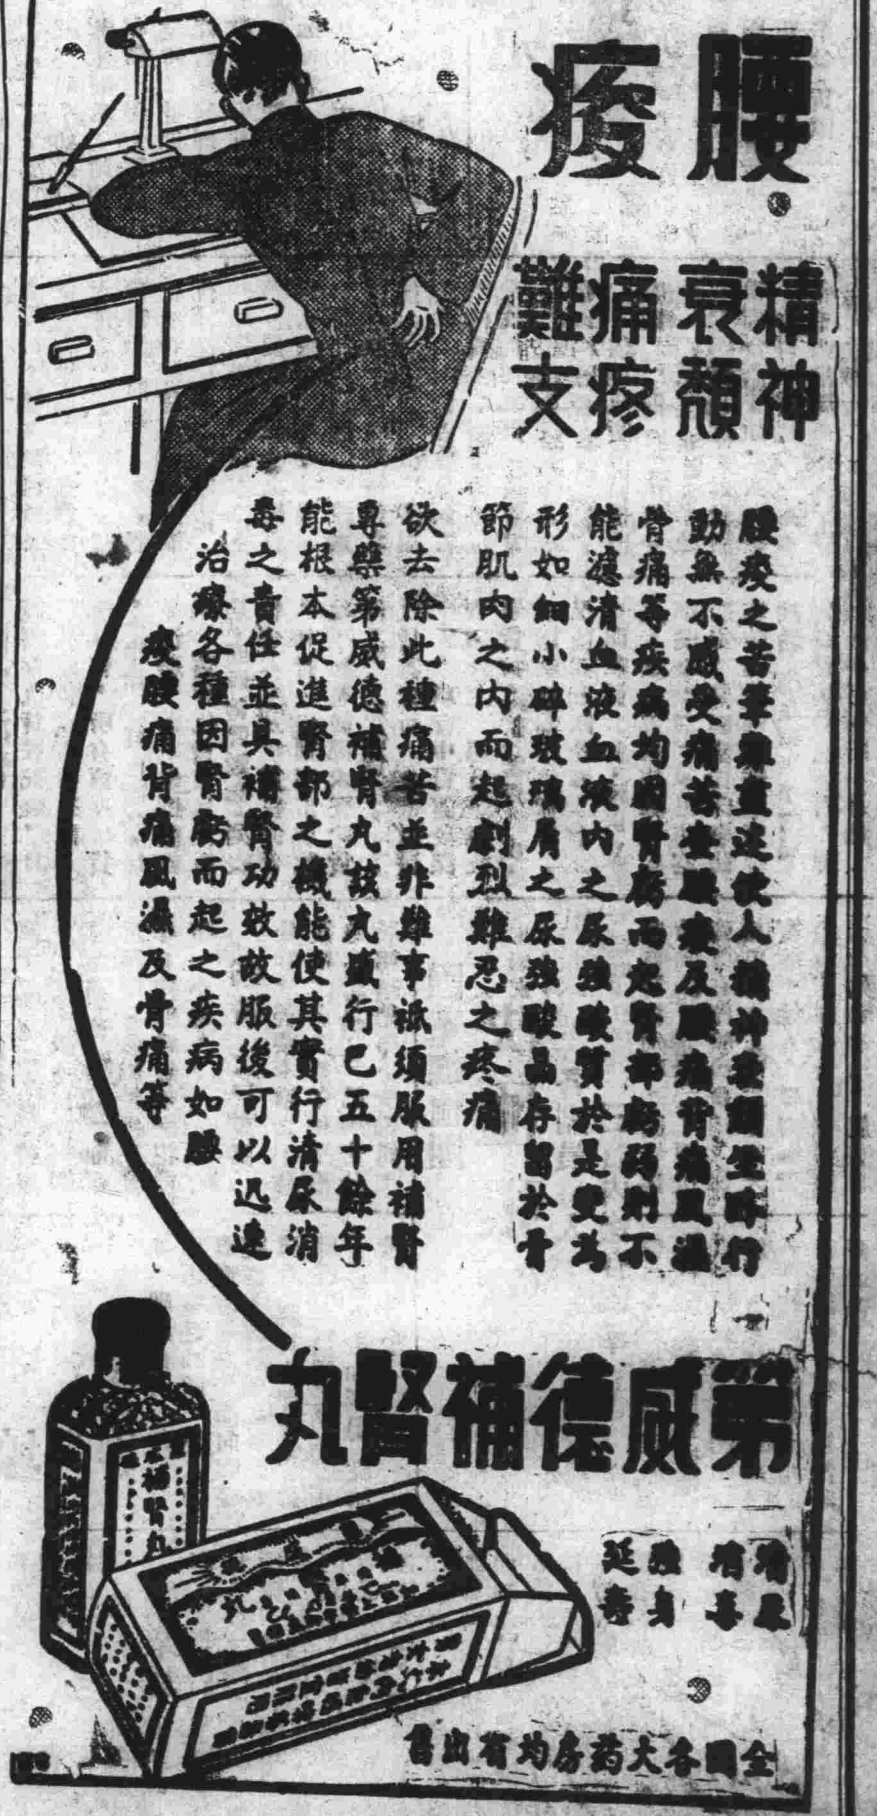 腰痠
精神
衰頹
痛疼
難支
腰痠之苦筆難盡述使人精神衰頹坐臥行
動無不感受痛苦查腰痠及腰痛背痛風濕
骨痛等疾病均因腎虧而起腎部虧弱則不
能濾清血液血液內之尿強酸質於是變為
形如細小碎玻璃屑之尿強酸晶存留於骨
節肌肉之內而起劇烈難忍之疼痛
欲去除此種痛苦並非難事祇須服用補腎
專藥第威德補腎丸該丸盛行已五十餘年
能根本促進腎部之機能使其實行清尿消
毒之責任並具補腎功效故服後可以迅速
治療各種因腎虧而起之疾病如腰
痠腰痛背痛風濕及骨痛等
第威德補腎丸
清尿
消毒
強身
延壽
補腎丸
全國各大葯房均有出售